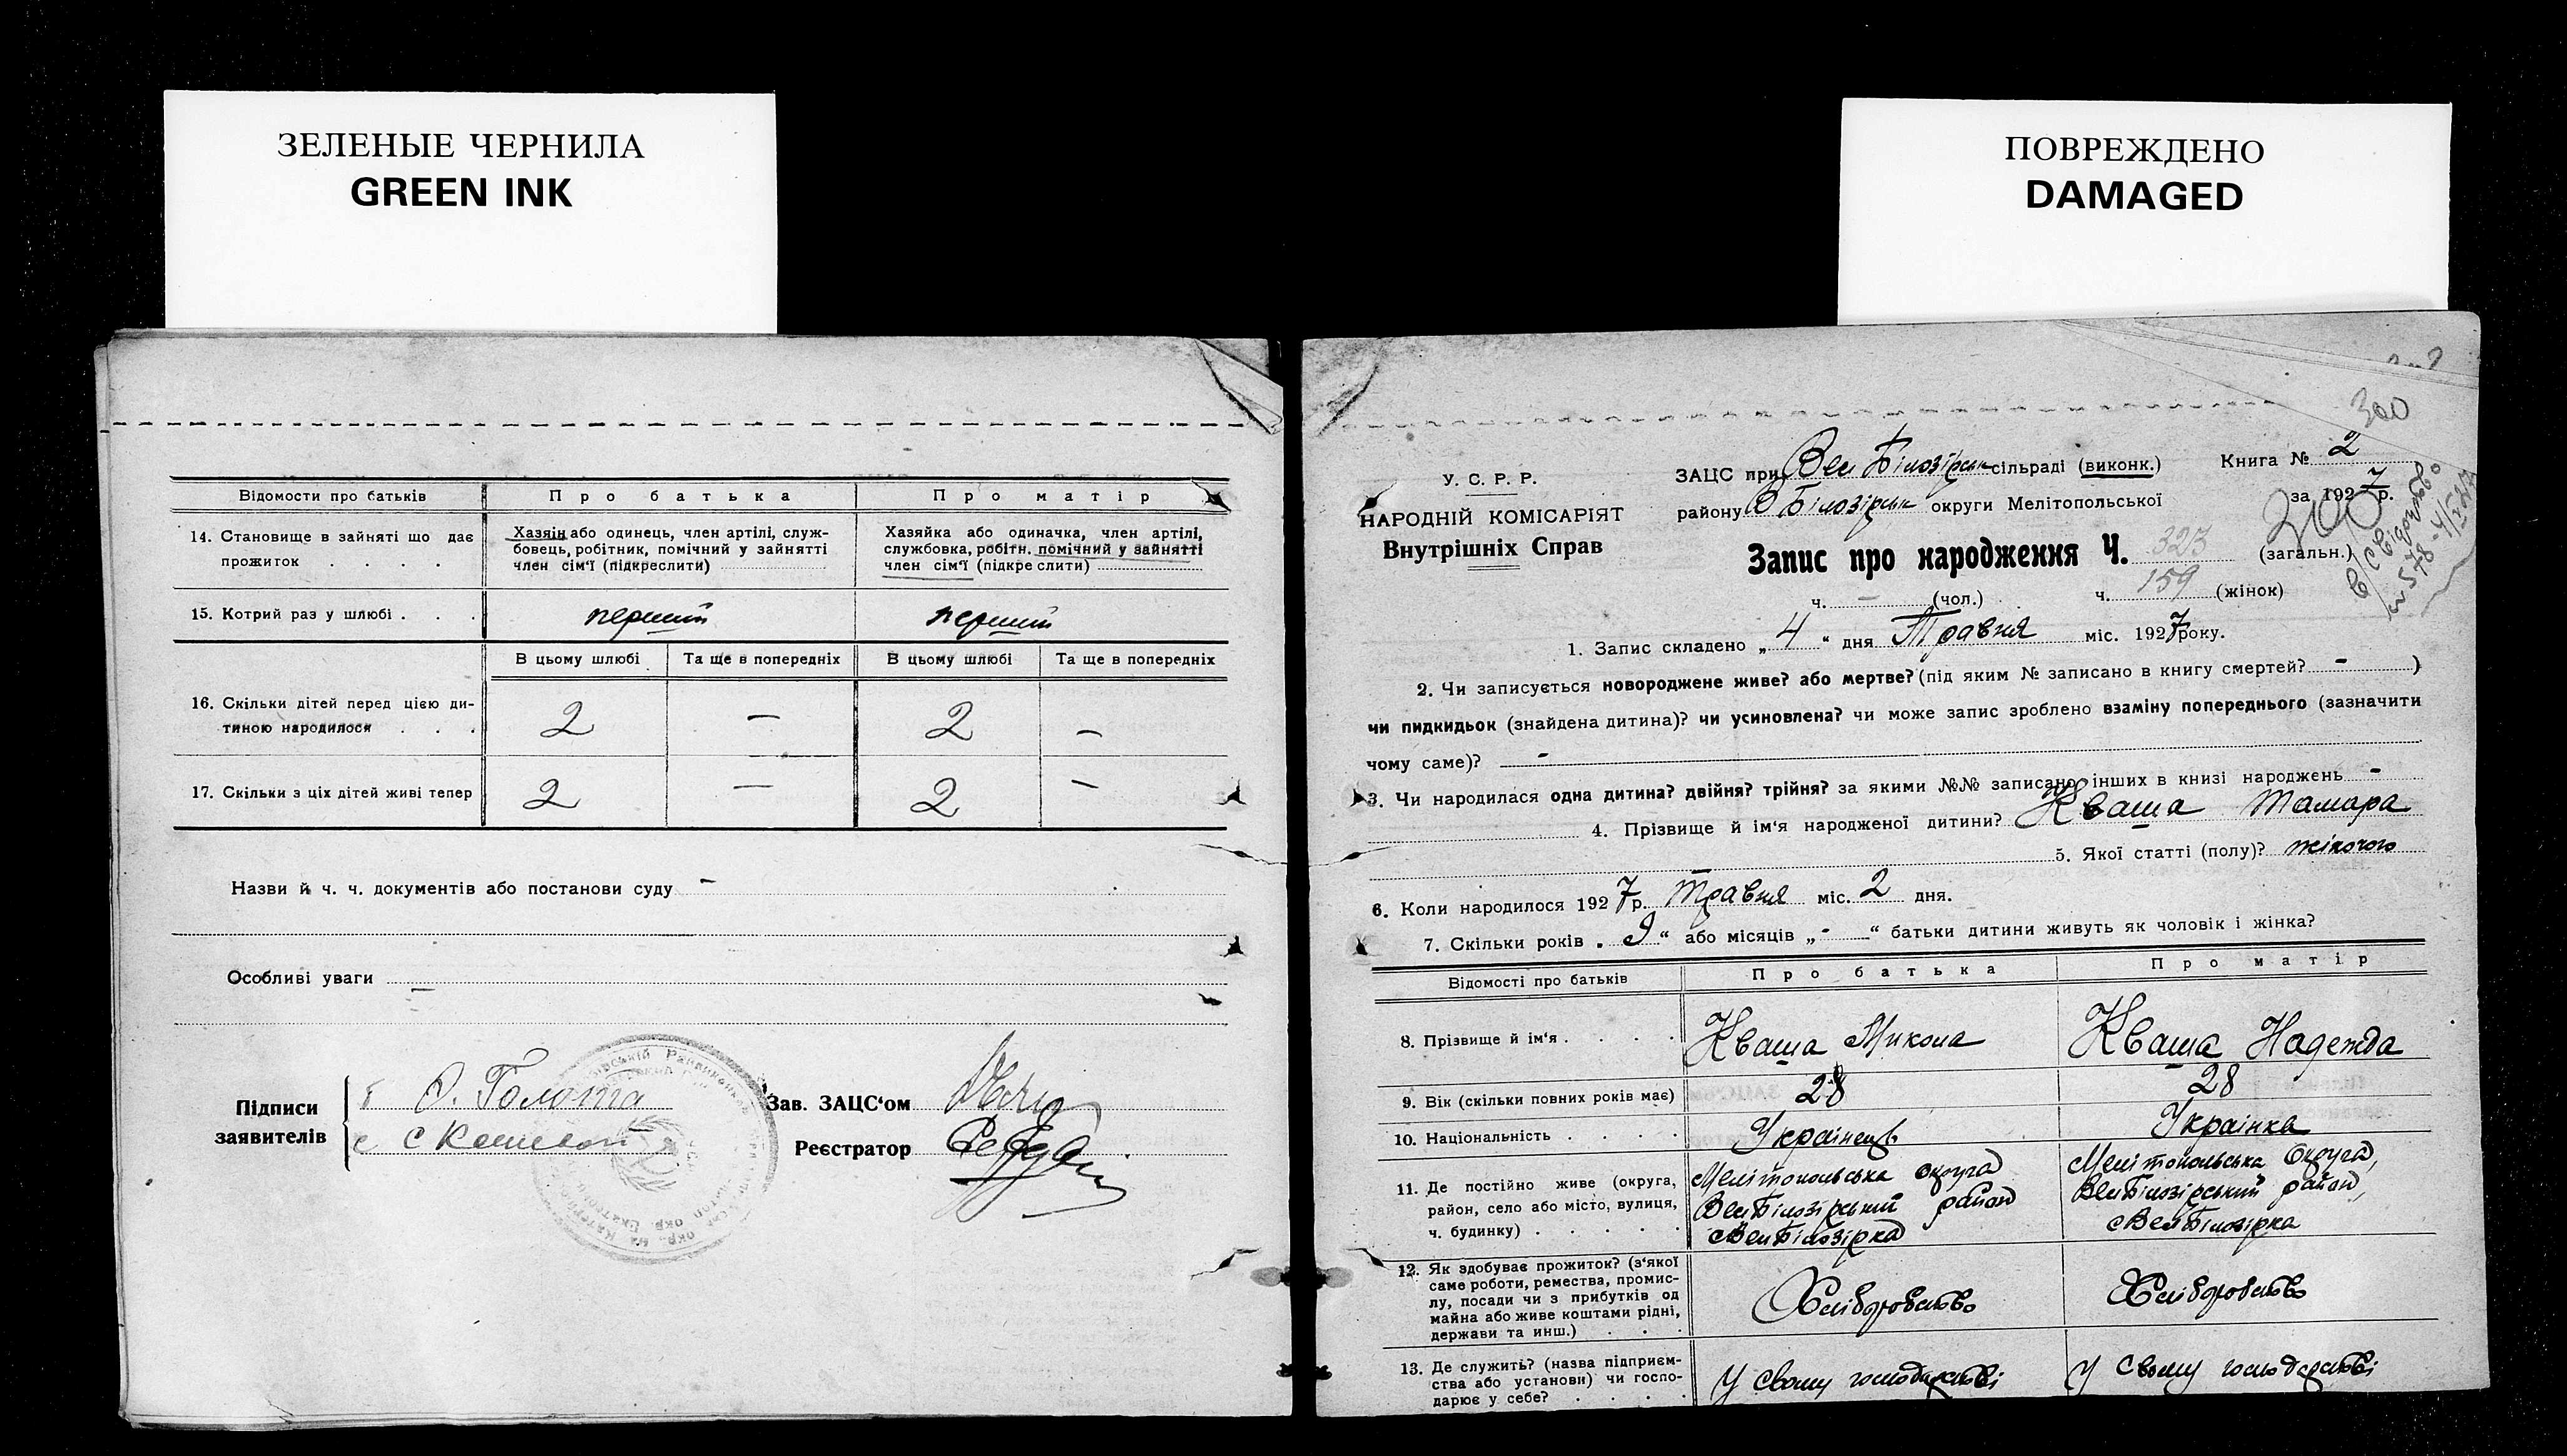 ЗЕЛЕНЫЕ ЧЕРНИЛА
GREEN INK
ПОВРЕЖДЕНО
DAMAGED
Відомости про батьків
Про батька
Про матір
14. Становище в зайняті що дає прожиток . . . .
Хазяін або одинець, член артілі, служ-
бовець, робітник, помічний у зайнятті
член сім'ї (підкреслити)
Хазяйка або одиначка, член артілі,
службовка, робітн. помічний у зайнятті
член сім'ї (підкреслити)
15. Котрий раз у шлюбі . . .
перший
перший
В цьому шлюбі
Та ще в попередніх
В цьому шлюбі
Та ще в попередніх
16. Скільки дітей перед цією ди-
тиною народилося . . .
2 — 2 —
17. Скільки з ціх дітей живі тепер
2 — 2 —
Назви й ч. ч. документів або постанови суду -
Особливі уваги —
Підписи
заявителів
О. Голота
Зав. ЗАЦС'ом
Реєстратор
300
У. С. Р. Р.
НАРОДНІЙ КОМІСАРІЯТ
Внутрішніх Справ
ЗАЦС при Вел Білозірськ сільраді (виконк.)
Книга № 2
району В Білозірськ округи Мелітопольської
за 1927 р.
300
Запис про народження Ч. 323 (загальн.)
ч. — (чол.) ч. 159 (жінок)
1. Запис складено „4“ дня Травня міс. 1927 року.
2. Чи записується новороджене живе? або мертве? (під яким № записано в книгу смертей? - )
чи пидкидьок (знайдена дитина)? чи усиновлена? чи може запис зроблено взаміну попереднього (зазначити
чому саме)? -
3. Чи народилася одна дитина? двійня? трійня? за якими №№ записано інших в книзі народжень -
4. Прізвище й ім'я народженої дитини? Кваша Тамара
5. Якої статті (полу)? жіночого
6. Коли народилося 1927 р. Травня міс. 2 дня.
7. Скільки років „9“ або місяців „-“ батьки дитини живуть як чоловік і жінка?
Відомості про батьків
Про батька
Про матір
8. Прізвище й ім'я . . . .
Кваша Микола
Кваша Надежда
9. Вік (скільки повних років має)
28
28
10. Національність . . . .
Українець
Українка
11. Де постійно живе (округа,
район, село або місто, вулиця,
ч. будинку) . . . . .
Мелітопольська округа
Вел Білозірський район
с Вел Білозірка
Мелітопольська Округа,
Вел Білозірський район,
с Вел Білозірка
12. Як здобуває прожиток? (з'якої
саме роботи, ремества, промис-
лу, посади чи з прибутків од
майна або живе коштами рідні,
держави та инш.) . . .
Хліборобство
Хліборобство
13. Де служить? (назва підприєм-
ства або установи) чи госпо-
дарює у себе? . . . .
У своєму господарстві
У своєму господарстві